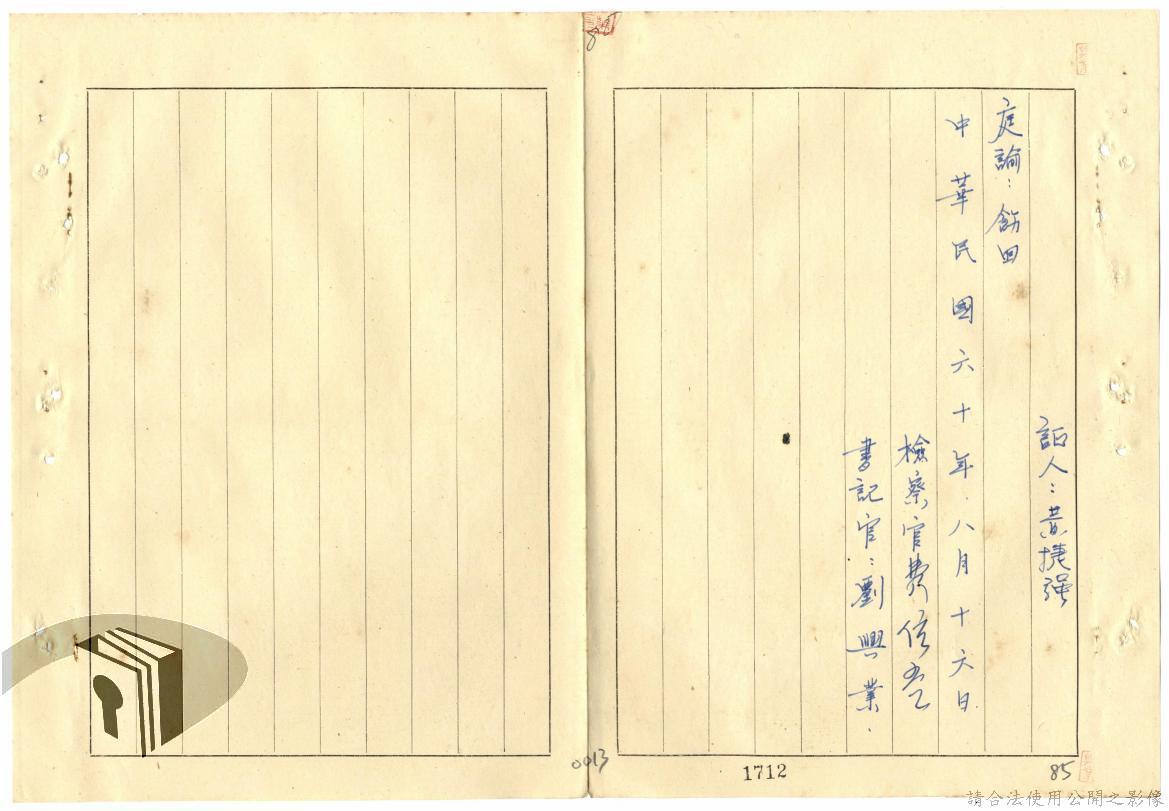 証人：黃捷强
庭諭：飭回
中華民國六十年八月十六日
檢察官費
書記官：劉興業
85
1712
0013
85
請合法使用公開之影像